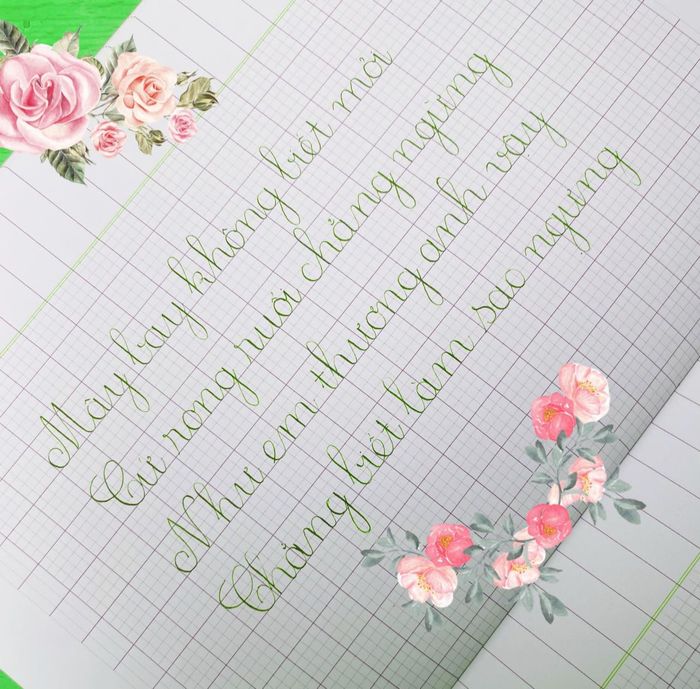 Mây bay không biết mỏi
Cứ rong ruổi chẳng ngừng
Như em thương anh vậy
Chẳng biết làm sao ngưng